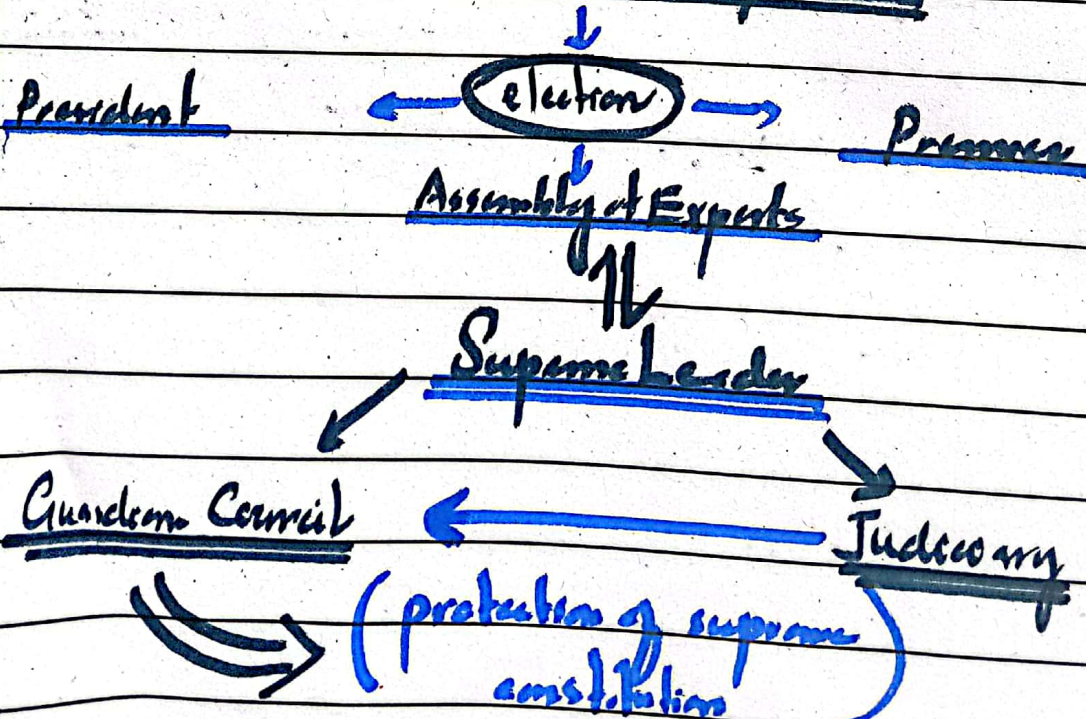 election
President
Premier
Assembly of Experts
Supreme Leader
Guardian Council
Judiciary
(protection of supreme
constitution)